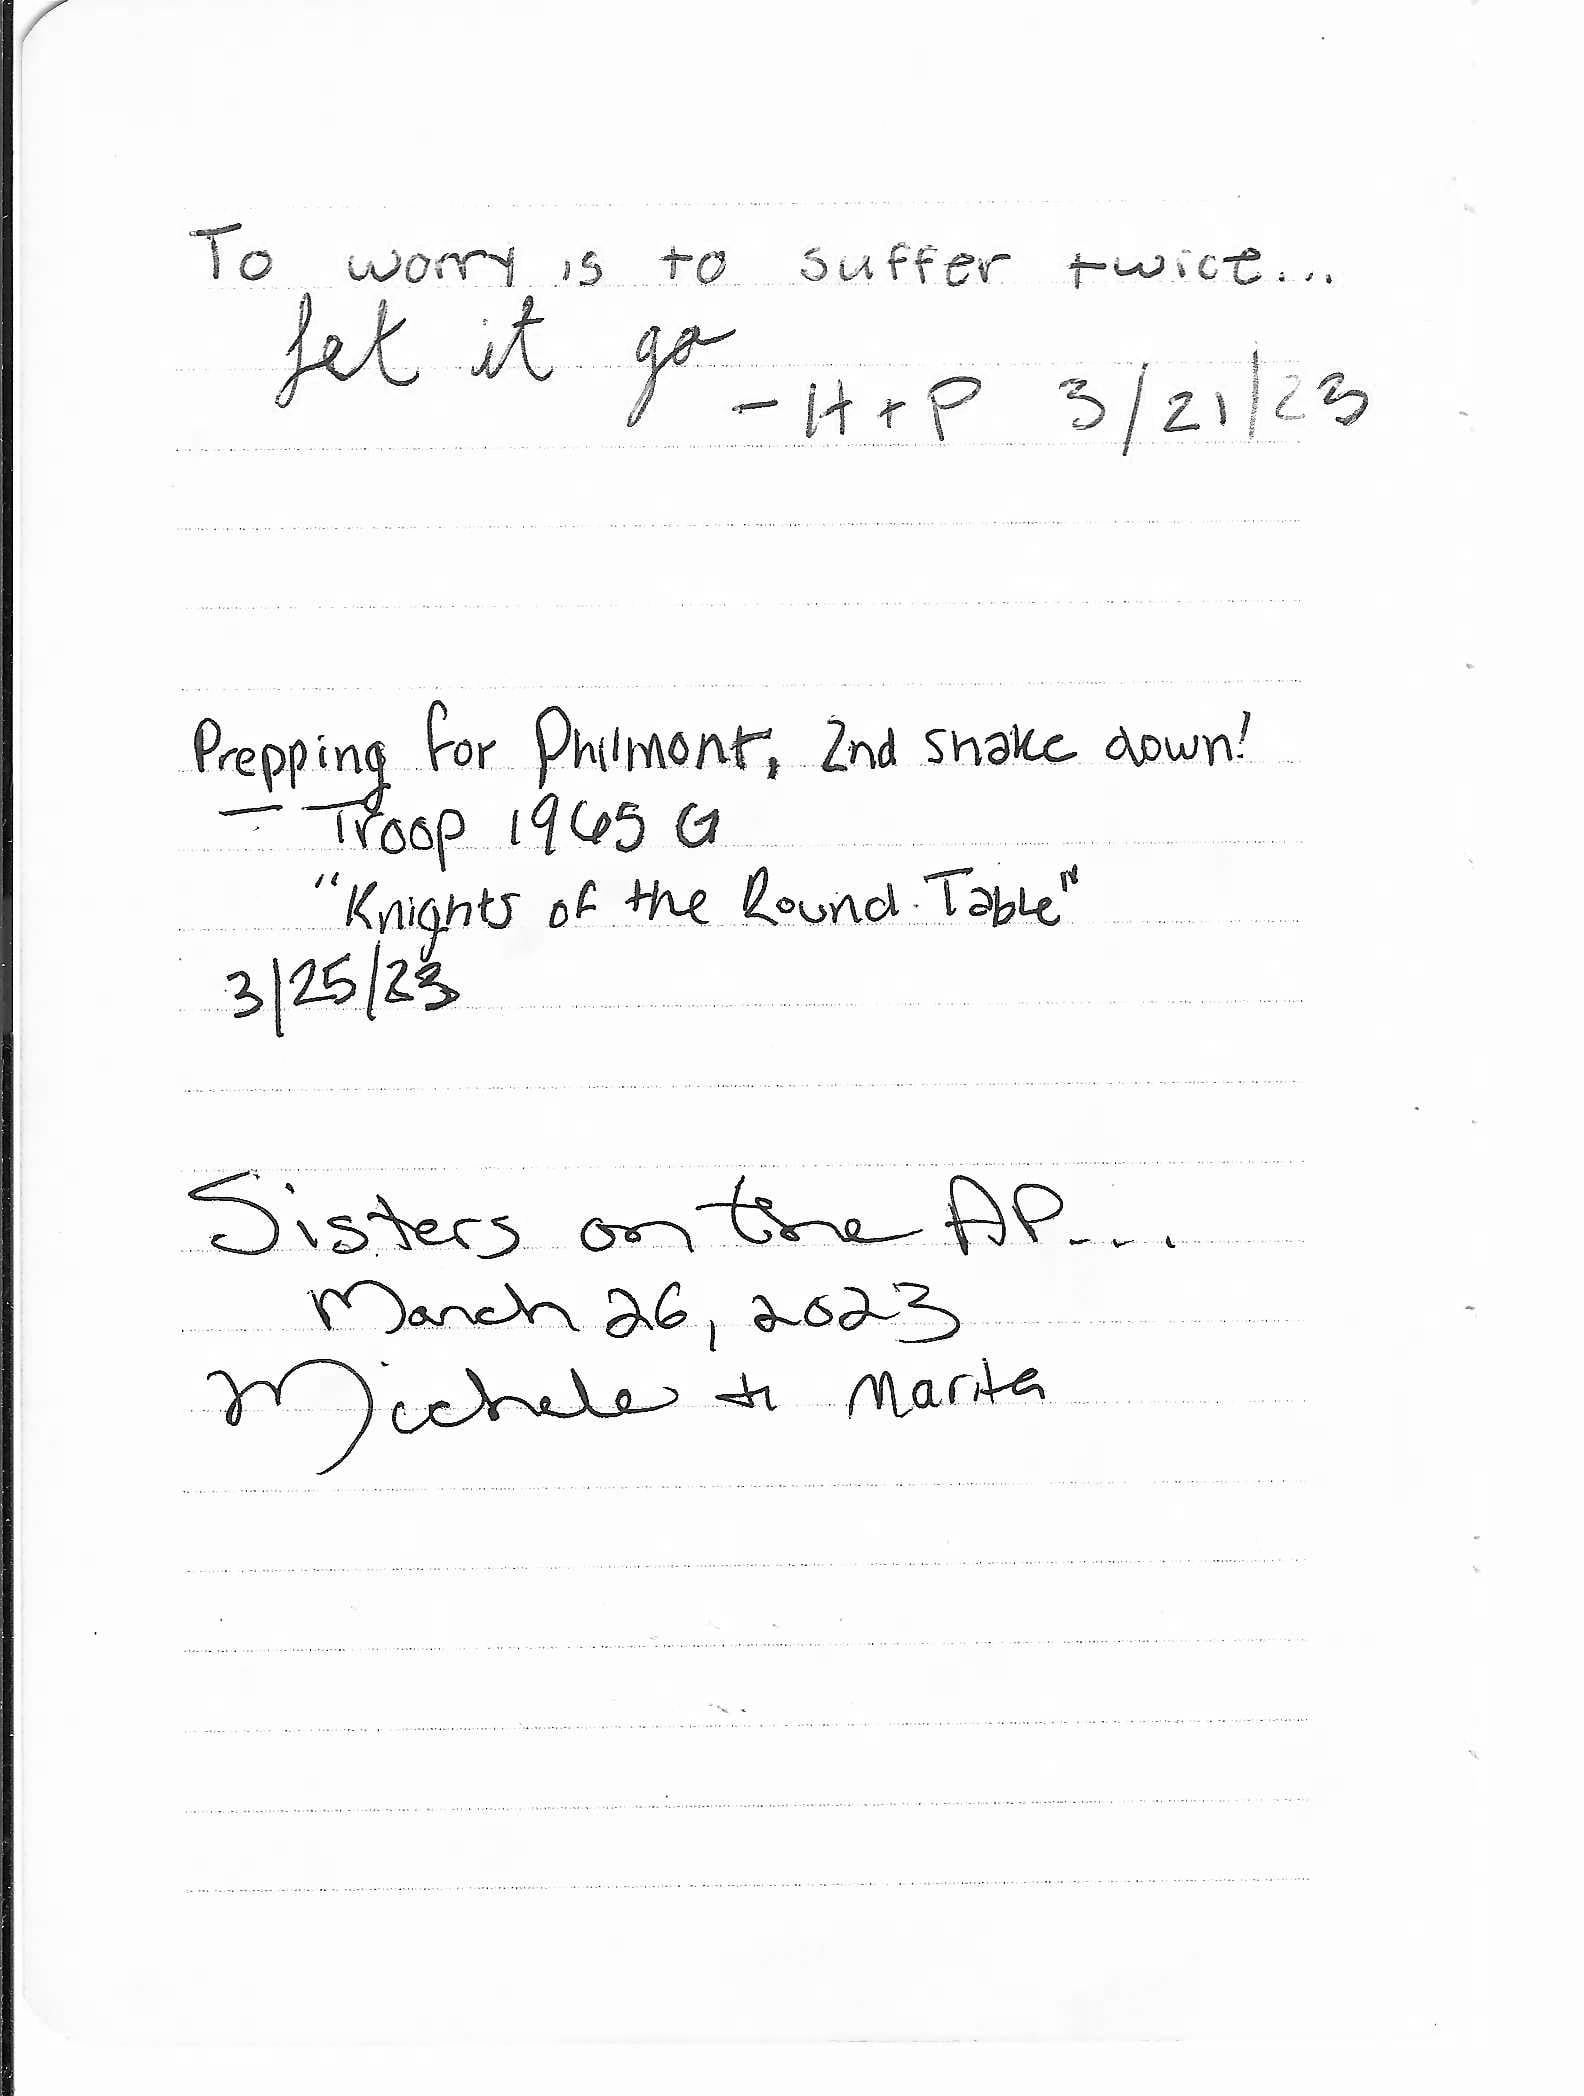 To worry is to suffer twice...
Let it go
- H + P 3/21/23
Prepping for Philmont, 2nd shake down!
- Troop 1965 G
"Knights of the Round Table"
3/25/23
Sisters on the AP...
March 26, 2023
Michele + Marita